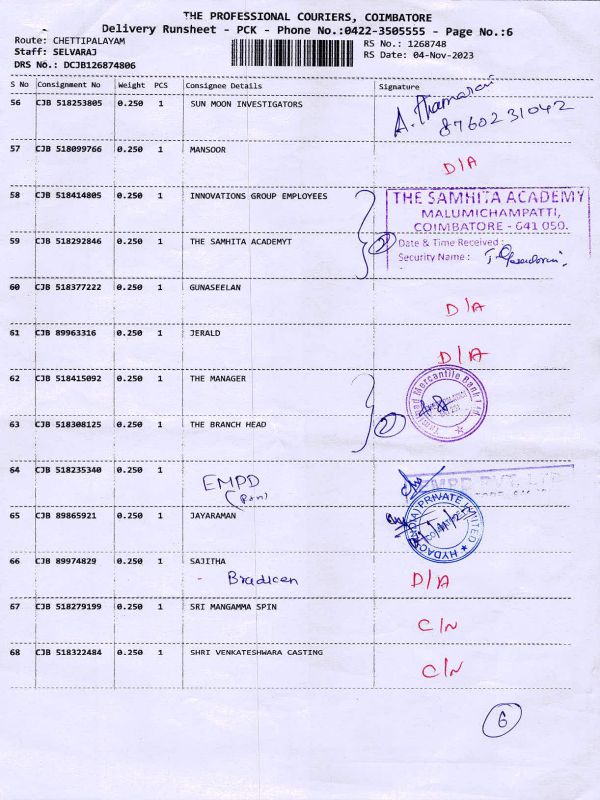 THE PROFESSIONAL COURIERS, COIMBATORE
Delivery Runsheet - PCK - Phone No.:0422-3505555 - Page No.:6
Route: CHETTIPALAYAM
RS No.: 1268748
Staff: SELVARAJ
RS Date: 04-Nov-2023
DRS No.: DCJB126874806
S No Consignment No Weight PCS Consignee Details Signature
56 CJB 518253805 0.250 1 SUN MOON INVESTIGATORS
A. Thamarai
8760231042
57 CJB 518099766 0.250 1 MANSOOR
D/A
58 CJB 518414805 0.250 1 INNOVATIONS GROUP EMPLOYEES
THE SAMHITA ACADEMY
MALUMICHAMPATTI,
COIMBATORE - 641 050.
59 CJB 518292846 0.250 1 THE SAMHITA ACADEMYT
2
Date & Time Received :
Security Name :
60 CJB 518377222 0.250 1 GUNASEELAN
D/A
61 CJB 89963316 0.250 1 JERALD
D/A
62 CJB 518415092 0.250 1 THE MANAGER
Tamilnad Mercantile Bank Ltd.
63 CJB 518308125 0.250 1 THE BRANCH HEAD
2
64 CJB 518235340 0.250 1
EMPD
MPD PVT. LTD
65 CJB 89865921 0.250 1 JAYARAMAN
HYDAC (INDIA) PRIVATE LIMITED
66 CJB 89974829 0.250 1 SAJITHA
- Bradken
D/A
67 CJB 518279199 0.250 1 SRI MANGAMMA SPIN
C/N
68 CJB 518322484 0.250 1 SHRI VENKATESHWARA CASTING
C/N
6